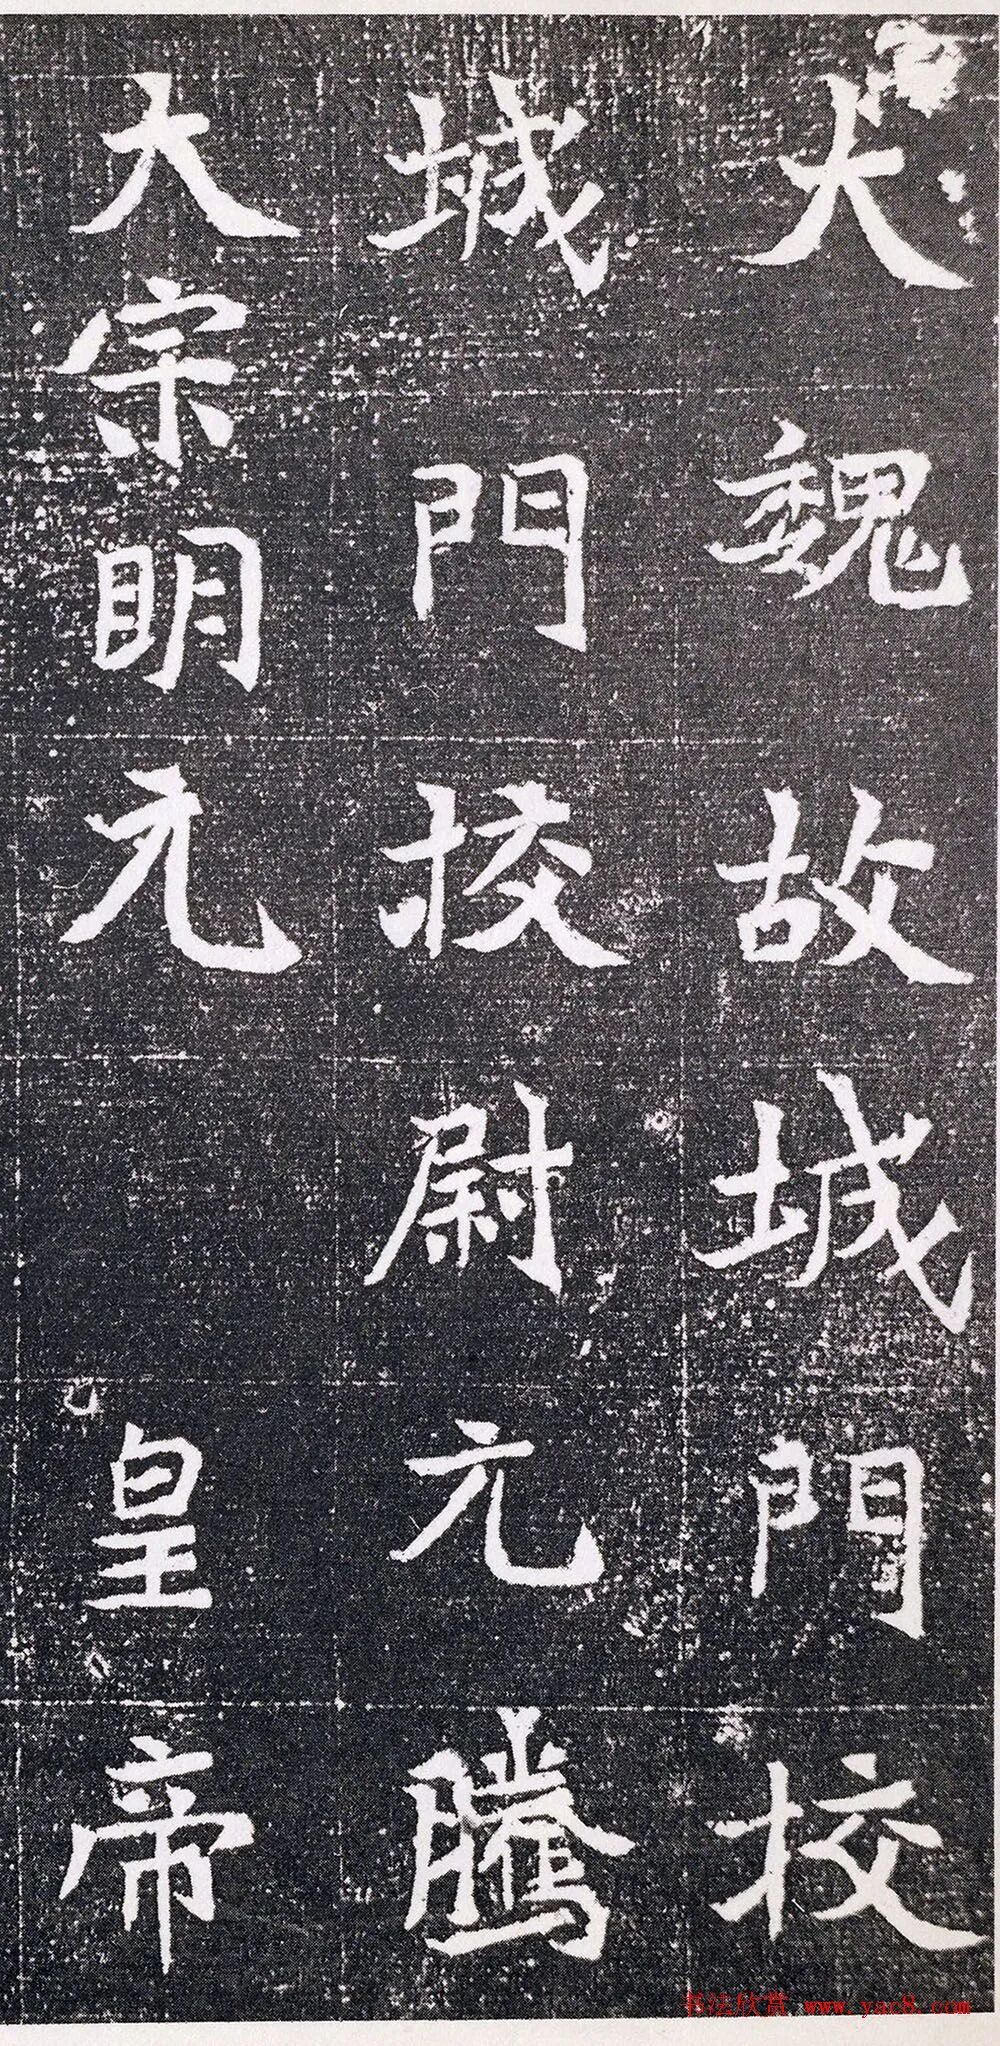 大魏故城門校
城門校尉元騰
大宗明元 皇帝
书法欣赏 www.yac8.com